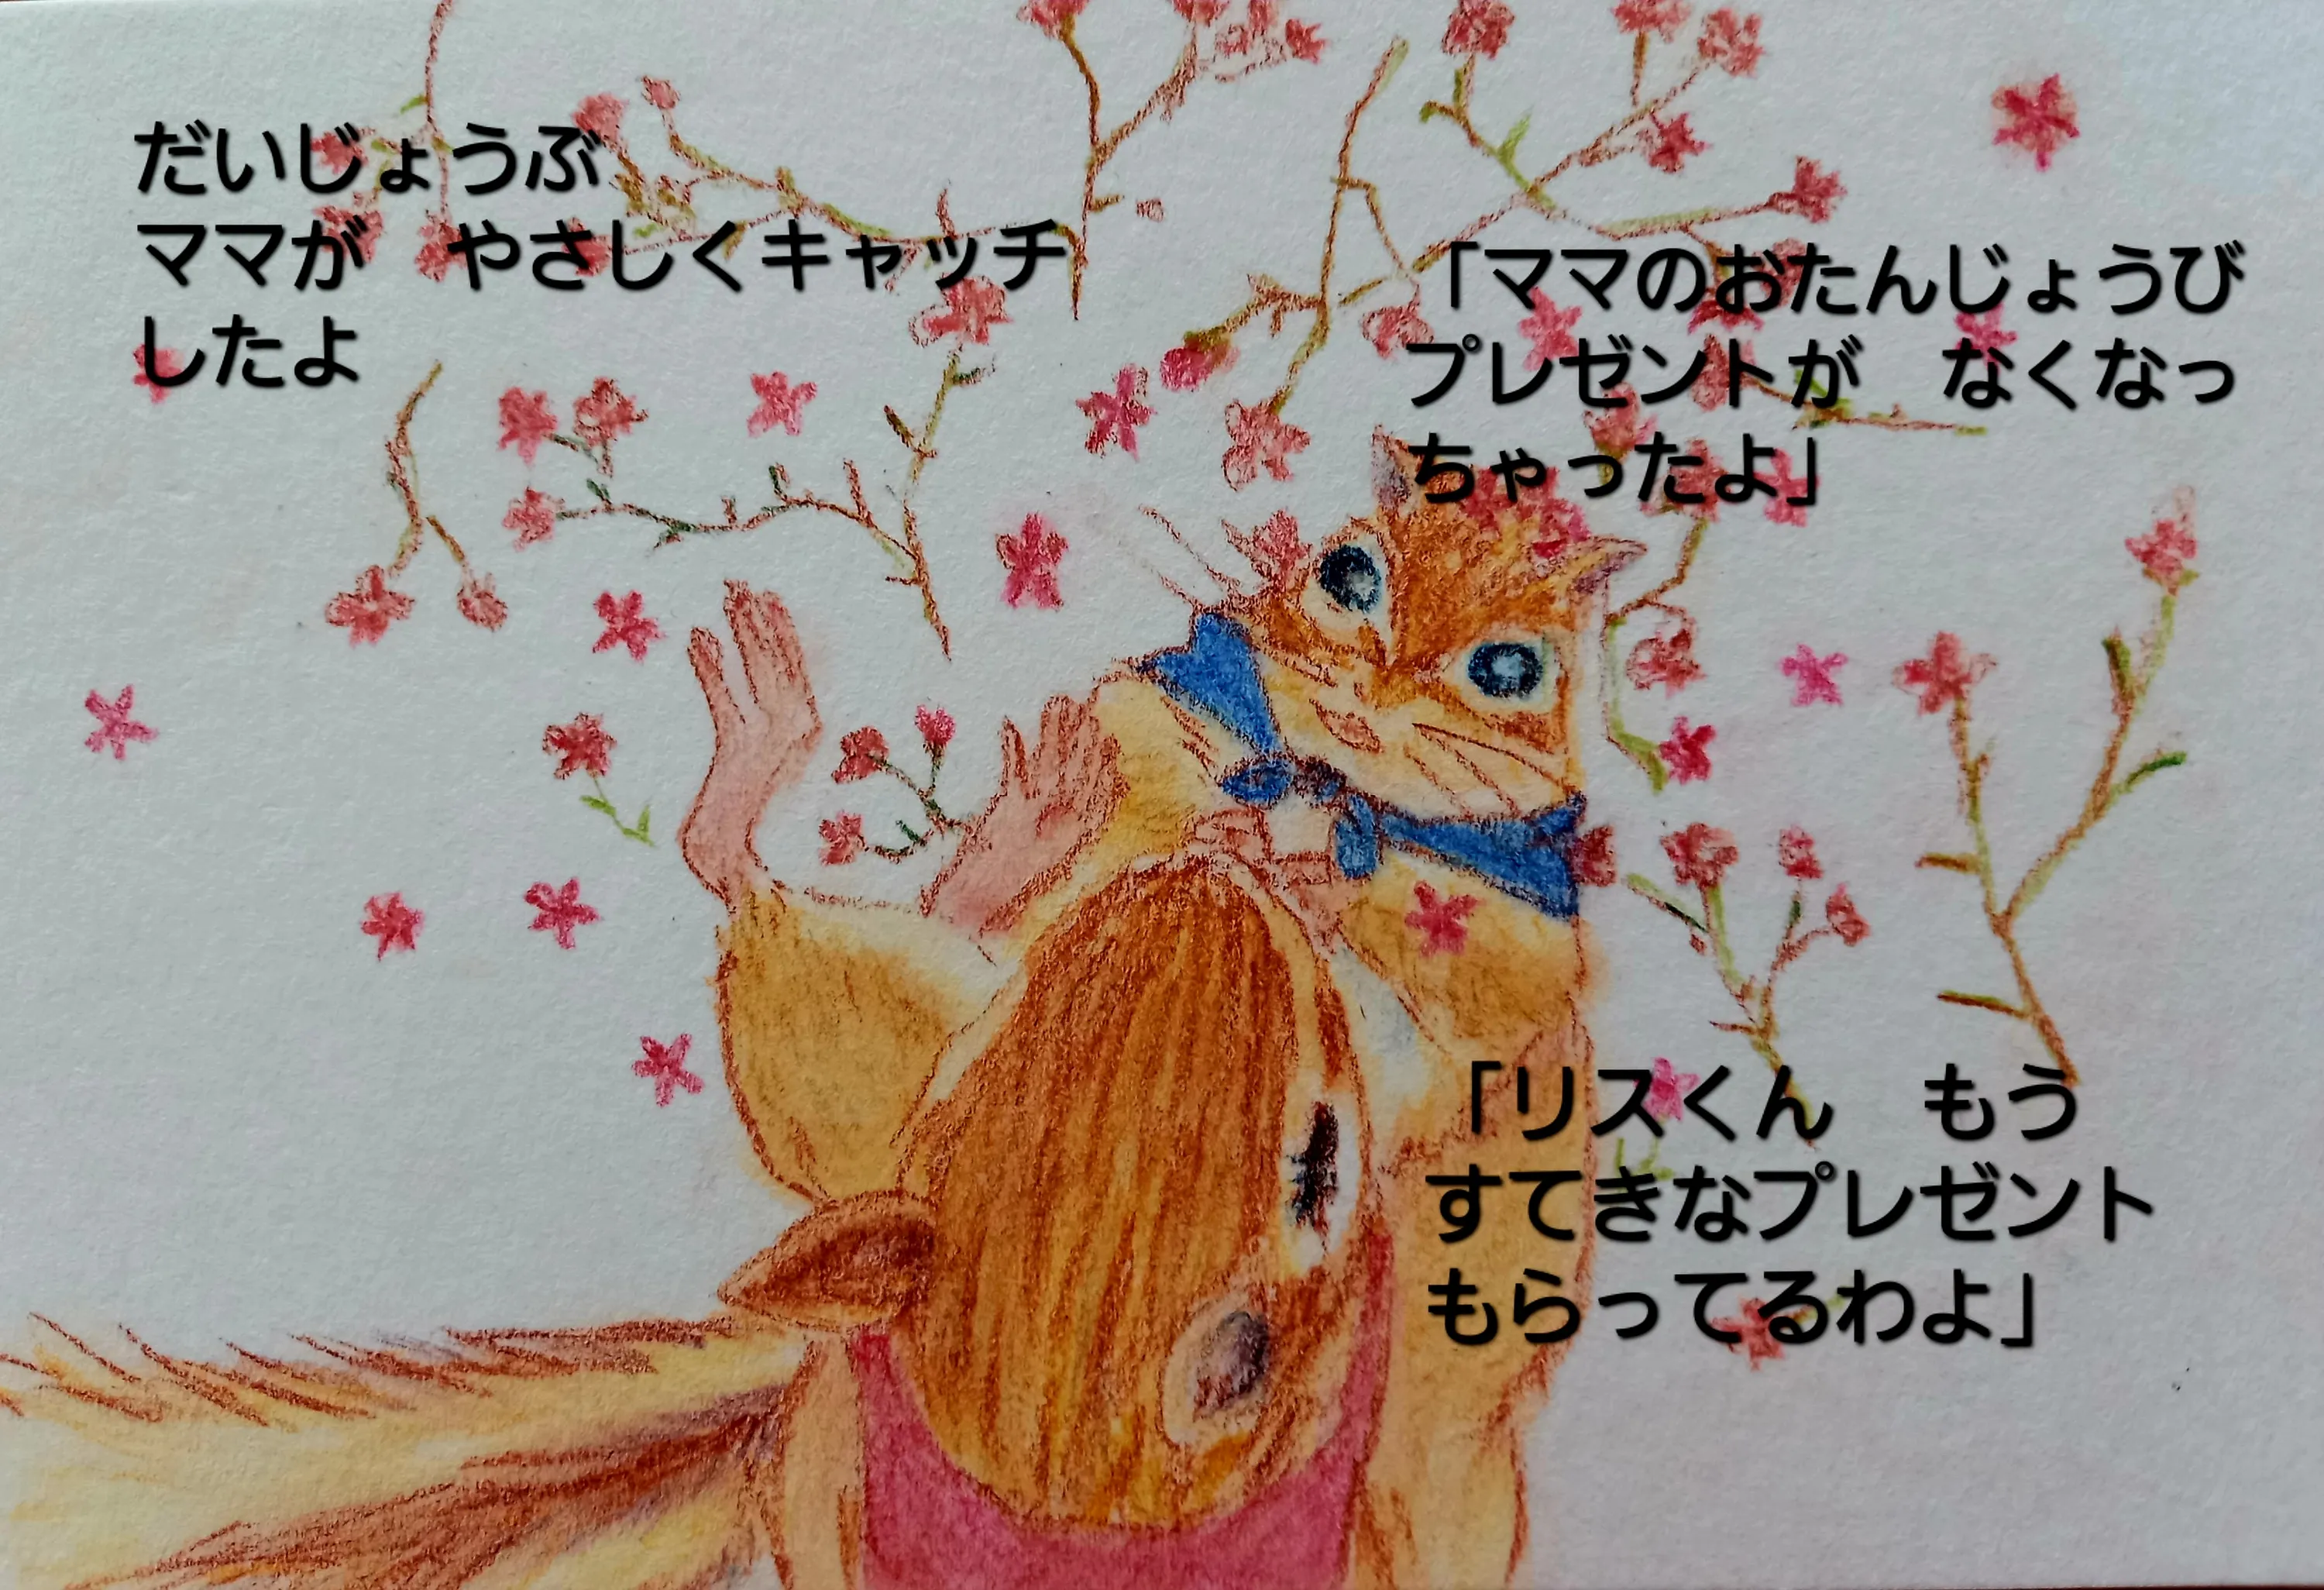 だいじょうぶ
ママが　やさしくキャッチ
したよ
「ママのおたんじょうび
プレゼントが　なくなっ
ちゃったよ」
「リスくん　もう
すてきなプレゼント
もらってるわよ」